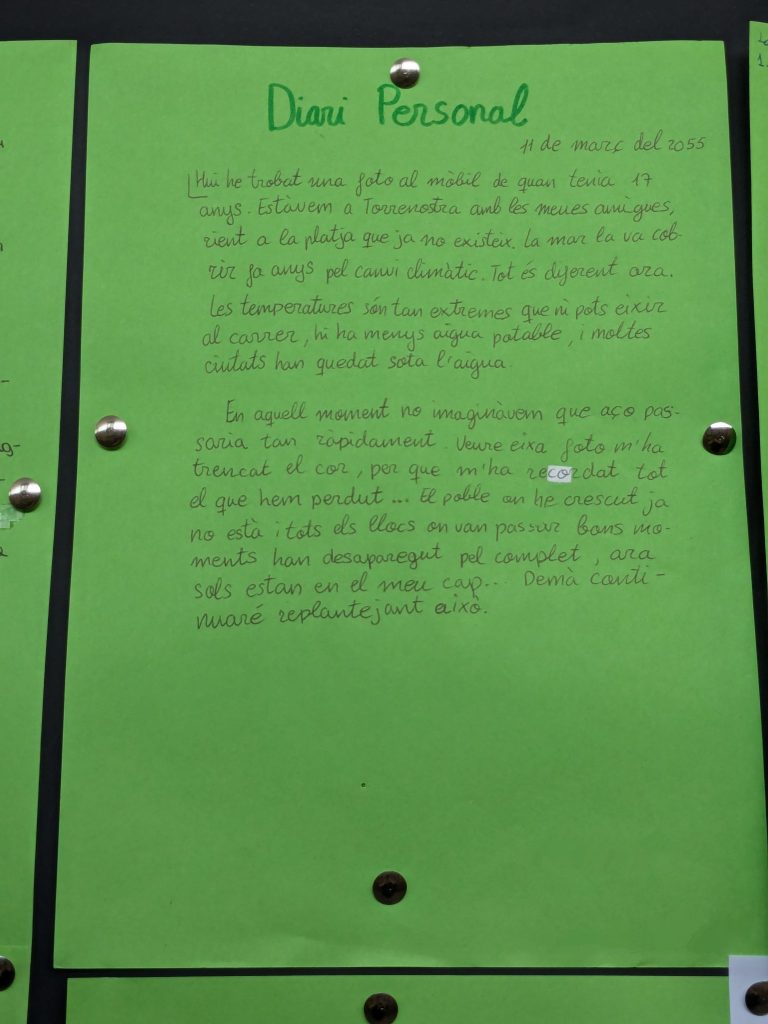 Diari Personal
11 de març del 2055
Hui he trobat una foto al mòbil de quan tenia 17
anys. Estàvem a Torrenostra amb les meues amigues,
rient a la platja que ja no existeix. La mar la va cob-
rir fa anys pel canvi climàtic. Tot és diferent ara.
Les temperatures són tan extremes que ni pots eixir
al carrer, hi ha menys aigua potable, i moltes
ciutats han quedat sota l'aigua.
En aquell moment no imaginàvem que aço pas-
saria tan ràpidament. Veure eixa foto m'ha
trencat el cor, per que m'ha recordat tot
el que hem perdut... El poble on he crescut ja
no està i tots els llocs on van passar bons mo-
ments han desaparegut pel complet, ara
sols estan en el meu cap... Demà conti-
nuaré replantejant això.